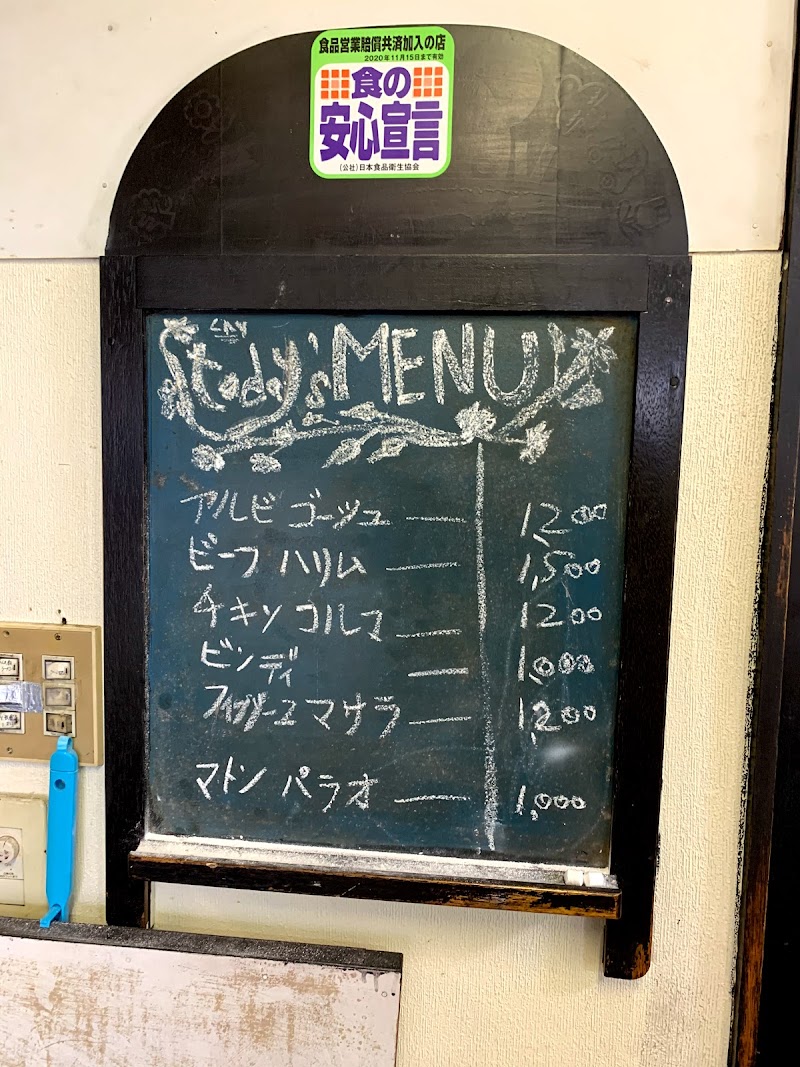 食品営業賠償共済加入の店
2020年11月15日まで有効
食の
安心宣言
(公社)日本食品衛生協会
today's MENU
アルビ ゴーシュ 1,200
ビーフ ハリム 1,500
チキン コルマ 1200
ビンディ 1,000
マサラ 1,200
マトン パラオ 1,000